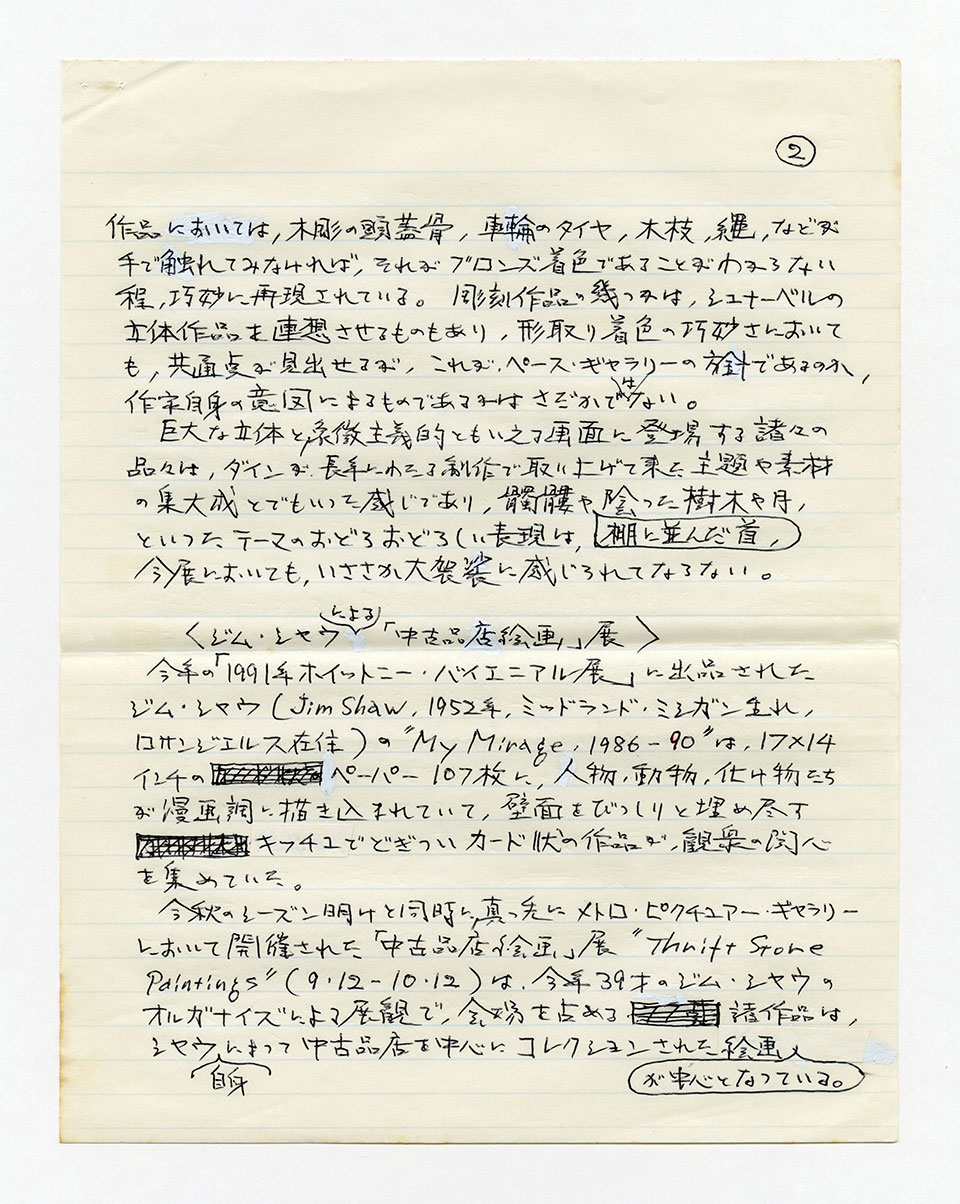 ②
作品においては，木彫の頭蓋骨，車輪のタイヤ，木枝，縄，などが
手で触れてみなければ，それがブロンズ着色であることがわからない
程，巧妙に再現されている。彫刻作品の幾つかは，シュナーベルの
立体作品を連想させるものもあり，形取り着色の巧妙さにおいて
も，共通点が見出せるが，これが，ペース・ギャラリーの方針であるのか，
作家自身の意図によるものであるかはさだかではない。
巨大な立体と，象徴主義的ともいえる画面に登場する諸々の
品々は，ダインが，長年にわたる制作で取り上げて来た主題や素材
の集大成とでもいった感じであり，髑髏や，陰った樹木や月，
といったテーマのおどろおどろしい表現は，棚に並んだ首，
今展においても，いささか大袈裟に感じられてならない。
〈ジム・シャウによる「中古品店絵画」展〉
今年の「1991年ホイットニー・バイエニアル展」に出品された
ジム・シャウ（Jim Shaw，1952年，ミッドランド・ミシガン生れ，
ロサンジェルス在住）の“My Mirage，1986-90”は，17×14
インチのペーパー107枚に，人物，動物，化け物たち
が漫画調に描き込まれていて，壁面をびっしりと埋め尽す
キッチュでどぎついカード状の作品が，観衆の関心
を集めていた。
今秋のシーズン明けと同時に，真っ先にメトロ・ピクチュアー・ギャラリー
において開催された「中古品店絵画」展“Thrift Store
Paintings”（9・12-10・12）は，今年39才のジム・シャウの
オルガナイズによる展観で，会場を占める諸作品は，
シャウ自身によって中古品店を中心にコレクションされた絵画
が中心となっている。